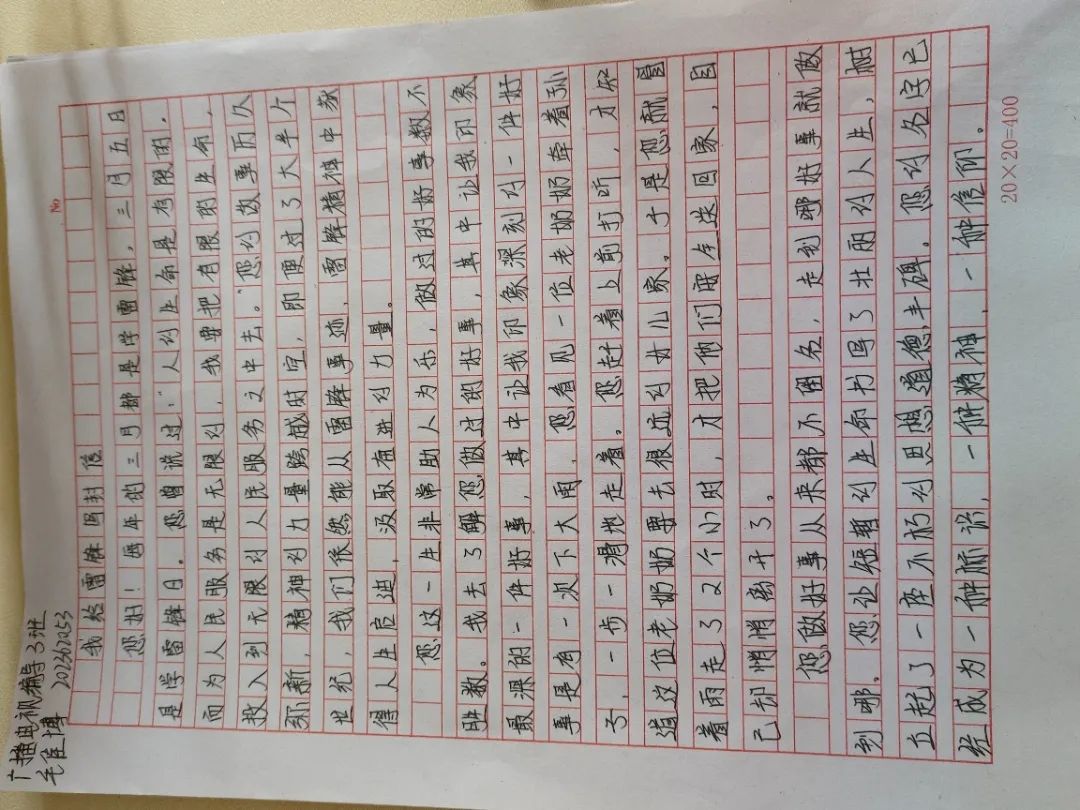 广播电视编导3班
毛佳博 202362253
No
我给雷锋写封信
您好！每年的三月都是学雷锋，三月五日
是学雷锋日。您曾说过：“人的生命是有限的，
而为人民服务是无限的，我要把有限的生命，
投入到无限的人民服务之中去。”您的故事历久
弥新，精神的力量跨越时空，即便过了大半个
世纪，我们依然能从雷锋事迹、雷锋精神中获
得人生启迪，汲取奋进的力量。
您这一生非常助人为乐，做过的好事数不
胜数。我去了解您做过的好事，其中让我印象
最深的一件好事，其中让我印象深刻的一件好
事是有一次下大雨，您看见一位老奶奶牵着孙
子，一步一滑地走着。您赶着上前打听，才知
道这位老奶奶要去很远的女儿家。于是您就冒
着雨走了2个小时，才把俩们安全送回家，自
己却悄悄离开了。
您做好事从来都不留名，走到哪好事就做
到哪。您让短暂的生命书写了壮丽的人生，树
立起了一座不朽的思想道德丰碑。您的名字已
经成为一种标识，一种精神、一种信仰。
20×20=400